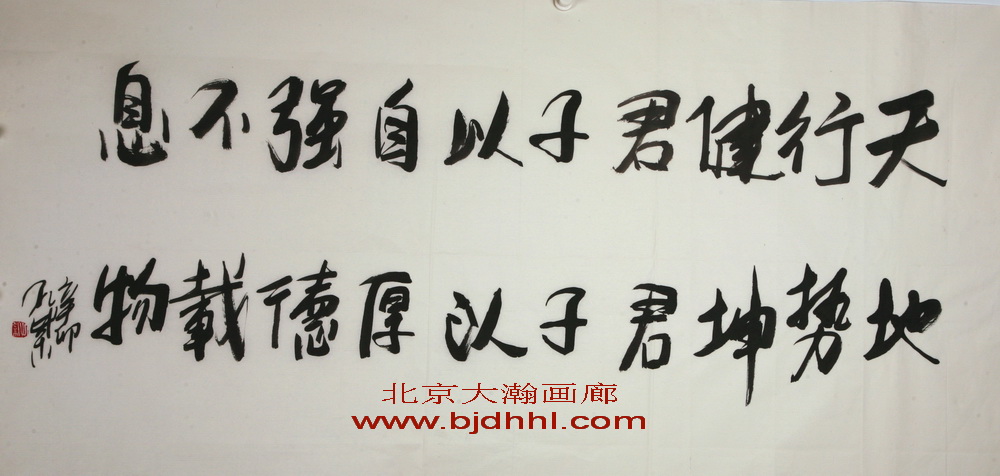 天行健君子以自强不息
地势坤君子以厚德载物
辛卯
北京大瀚画廊
www.bjdhhl.com